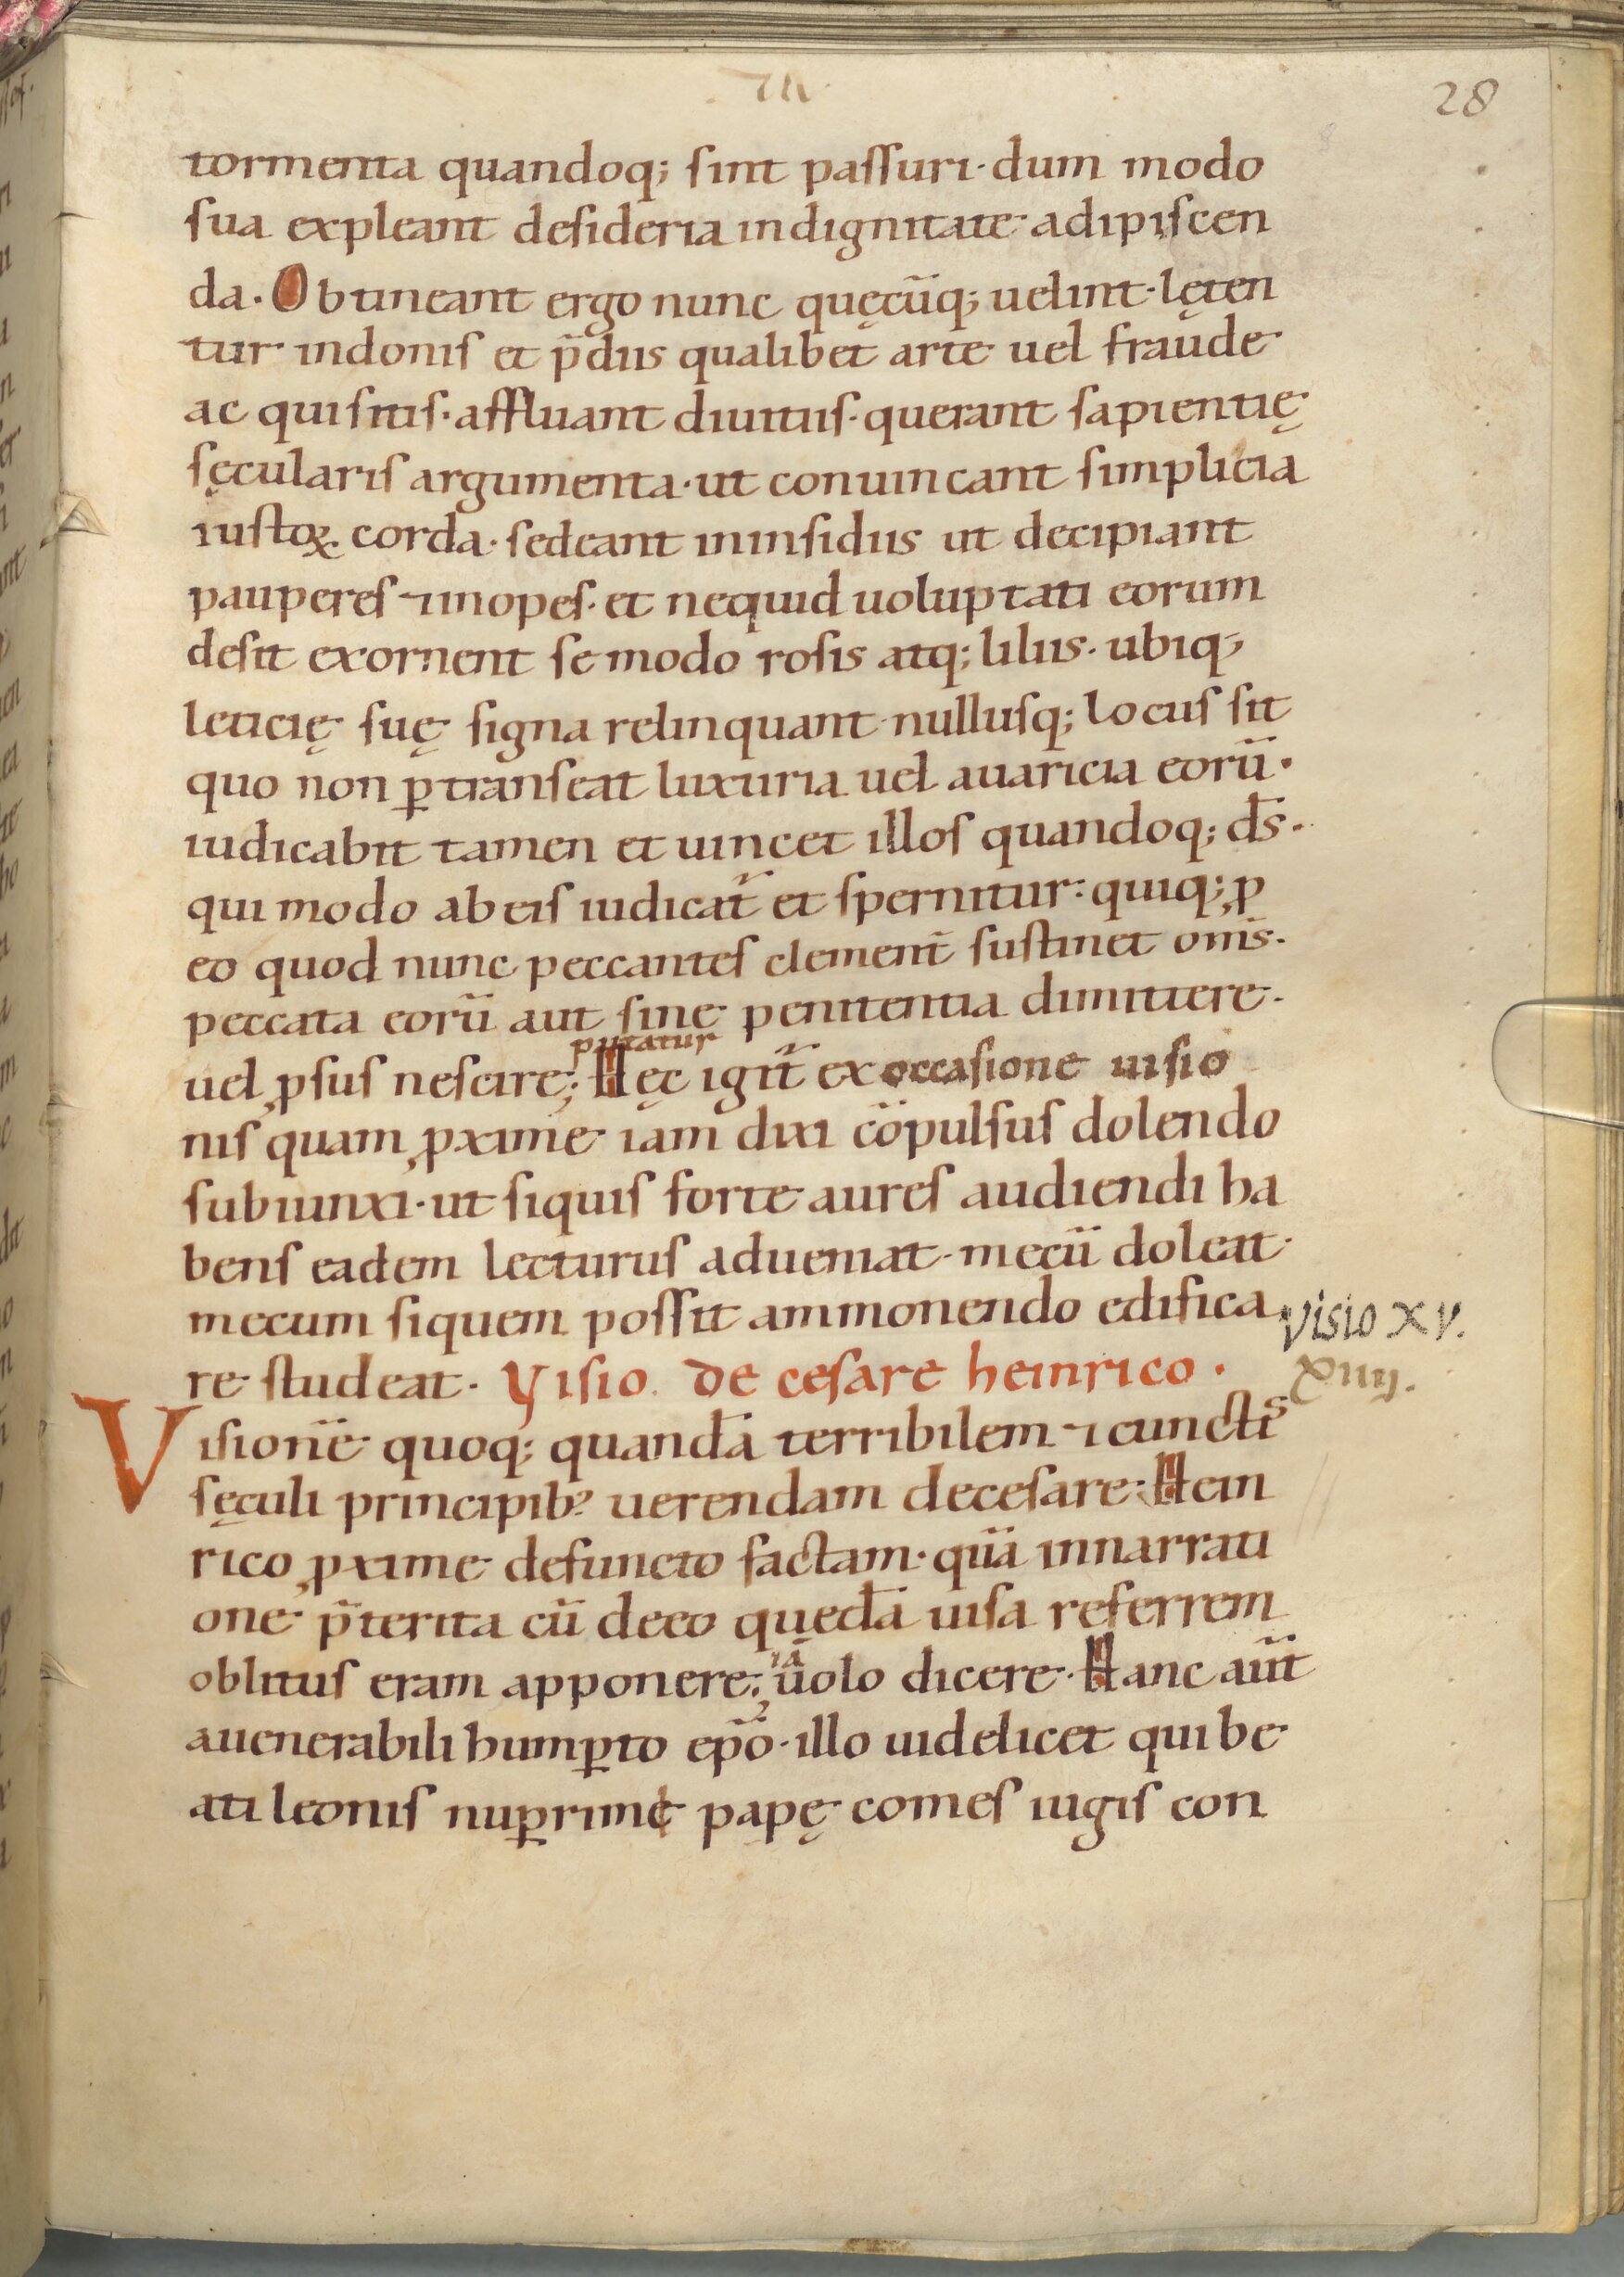 28
tormenta quandoq; sint passuri· dum modo
sua expleant desideria in dignitate adipiscen
da. Obtineant ergo nunc quęcūq; uelint· lęten
tur in donis et p̄diis qualibet arte uel fraude
ac quisitis· affluant diuitiis· querant sapientię
sęcularis argumenta· ut conuincant simplicia
iustoꝝ corda· sedeant in insidiis ut decipiant
pauperes ⁊ inopes· et nequid uoluptati eorum
desit exornent se modo rosis atq; liliis· ubiq;
leticię suę signa relinquant· nullusq; locus sit
quo non ꝑtranseat luxuria uel auaricia eorū·
iudicabit tamen et uincet illos quandoq; d̄s·
qui modo ab eis iudicat̄ et spernitur: quiq; ꝓ
eo quod nunc peccantes clement̄ sustinet om̄s·
peccata eorū aut sine penitentia dimittere·
putatur
uel ꝓsus nescire; Hęc igit̄ ex occasione uisio
nis quam ꝓxime iam dixi cōpulsus dolendo
subiunxi· ut siquis forte aures audiendi ha
bens eadem lecturus adueniat· mecū doleat·
mecum siquem possit ammonendo edifica
visio XV.
re studeat. Visio de cesare heinrico.
XIIII.
Visionē quoq; quandā terribilem ⁊ cunctis
sęculi principib; uerendam de cesare Hein
rico ꝓxime defuncto factam· quā in narrati
one p̄terita cū de eo quędā uisa referrem
oblitus eram apponere; iā uolo dicere. Hanc aūt
a uenerabili humꝑto ep̄o· illo uidelicet qui be
ati leonis nuꝑrime papę comes iugis con